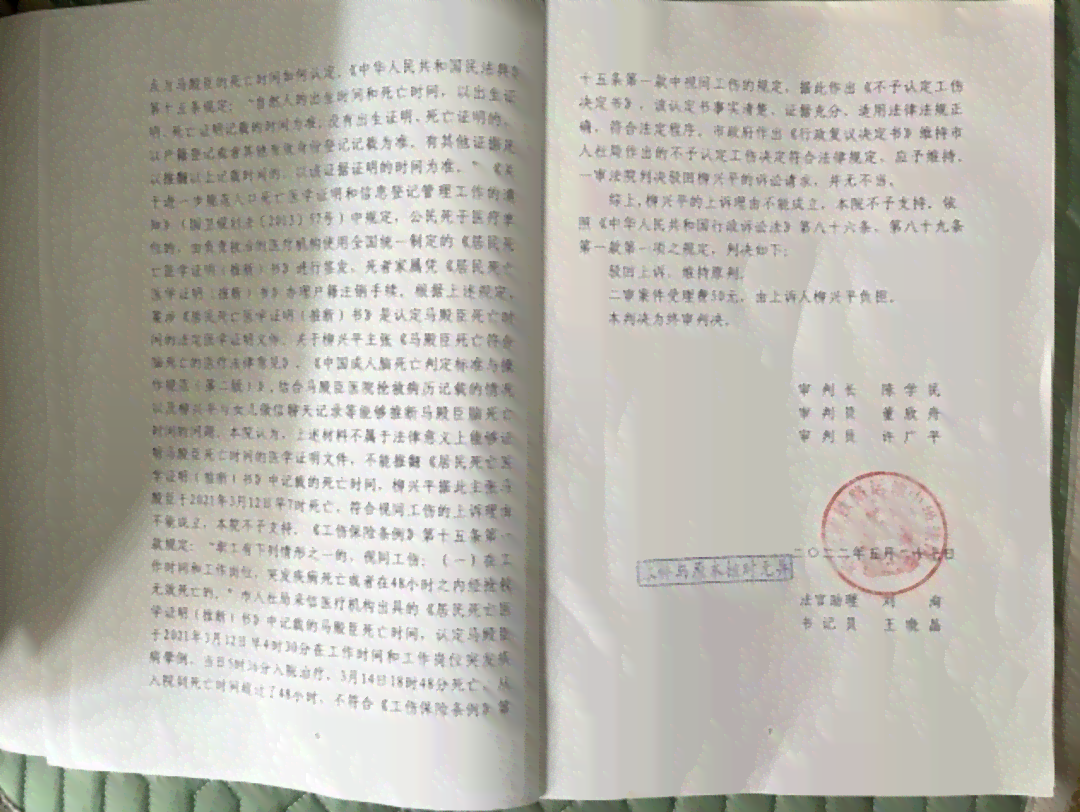 点与马殿臣的死亡时间如何认定，《中华人民共和国民法典》
第十五条规定：“自然人的出生时间和死亡时间，以出生证
明、死亡证明记载的时间为准，没有出生证明、死亡证明的，
以户籍登记或者其他有效身份登记记载为准。有其他证据足
以推翻以上记载时间的，以该证据证明的时间为准。”《关
于进一步规范人口死亡医学证明和信息登记管理工作的通
知》（国卫规划发〔2013〕57号）中规定，公民死于医疗单
位的，由负责救治的医疗机构使用全国统一制定的《居民死
亡医学证明（推断）书》进行签发，死者家属凭《居民死亡
医学证明（推断）书》办理户籍注销手续。根据上述规定，
案涉《居民死亡医学证明（推断）书》是认定马殿臣死亡时
间的法定医学证明文件。关于柳兴平主张《马殿臣死亡符合
脑死亡的医疗法律意见》、《中国成人脑死亡判定标准与操
作规范（第二版）》，结合马殿臣医院抢救病历记载的情况
以及柳兴平与女儿微信聊天记录等能够推断马殿臣脑死亡
时间的问题，本院认为，上述材料不属于法律意义上能够证
明马殿臣死亡时间的医学证明文件，不能推翻《居民死亡医
学证明（推断）书》中记载的死亡时间，柳兴平据此主张马
殿臣于2021年3月12日早7时死亡，符合视同工伤的上诉理由
不能成立，本院不予支持。《工伤保险条例》第十五条第一
款规定：“职工有下列情形之一的，视同工伤：（一）在工
作时间和工作岗位，突发疾病死亡或者在48小时之内经抢救
无效死亡的，”市人社局采信医疗机构出具的《居民死亡医
学证明（推断）书》中记载的马殿臣死亡时间，认定马殿臣
于2021年3月12日早4时30分在工作时间和工作岗位突发疾
病晕倒，当日5时36分入院治疗，3月14日18时48分死亡，从
入院到死亡时间超过了48小时，不符合《工伤保险条例》第
十五条第一款中视同工伤的规定，据此作出《不予认定工伤
决定书》，该认定书事实清楚、证据充分，适用法律法规正
确，符合法定程序。市政府作出《行政复议决定书》维持市
人社局作出的不予认定工伤决定符合法律规定，应予维持。
一审法院判决驳回柳兴平的诉讼请求，并无不当。
综上，柳兴平的上诉理由不能成立，本院不予支持。依
照《中华人民共和国行政诉讼法》第八十六条、第八十九条
第一款第一项之规定，判决如下：
驳回上诉，维持原判。
二审案件受理费50元，由上诉人柳兴平负担。
本判决为终审判决。
审 判 长 陈 学 民
审 判 员 董 欣 舟
审 判 员 许 广 平
二〇二二年五月二十七日
本件与原本核对无异
法官助理 刘 海
书 记 员 王 晓 晶